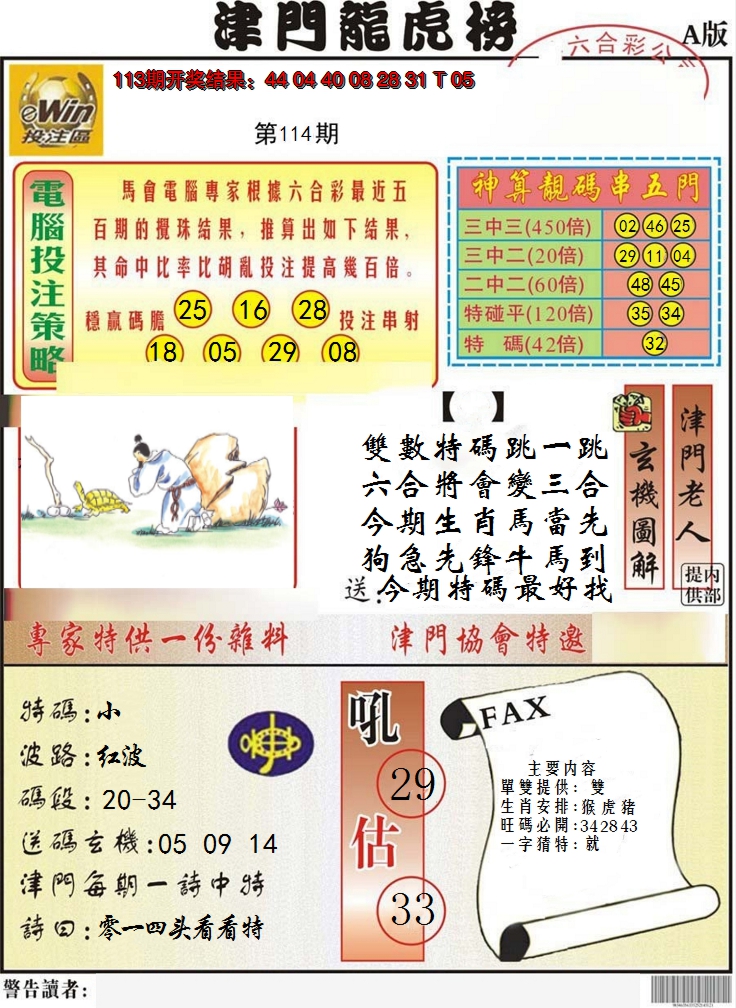 津門龍虎榜
六合彩公
A版
113期开奖结果：44 04 40 08 28 31 T 05
eWin
投注區
第114期
電腦投注策略
馬會電腦專家根據六合彩最近五
百期的攪珠结果，推算出如下结果，
其命中比率比胡亂投注提高幾百倍。
穩贏碼膽 25 16 28 投注串射
18 05 29 08
神算靚碼串五門
三中三(450倍) 02 46 25
三中二(20倍) 29 11 04
二中二(60倍) 48 45
特碰平(120倍) 35 34
特 碼(42倍) 32
【 】
雙數特碼跳一跳
六合將會變三合
今期生肖馬當先
狗急先鋒牛馬到
送：今期特碼最好找
玄機圖解
津門老人
内部提供
專家特供一份雜料
津門協會特邀
特碼:小
波路:红波
碼段:20-34
送碼玄機:05 09 14
津門每期一詩中特
詩曰:零一四头看看特
吼
29
估
33
FAX
主要内容
單雙提供：雙
生肖安排:猴虎豬
旺碼必開:34 28 43
一字猜特：就
警告讀者：